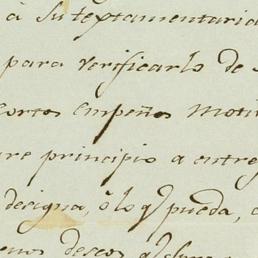 à su textamentaria
para verificarlo de
cortos empeños moti
re principio a entre
designa, ò lo q̃ pueda,
deseos